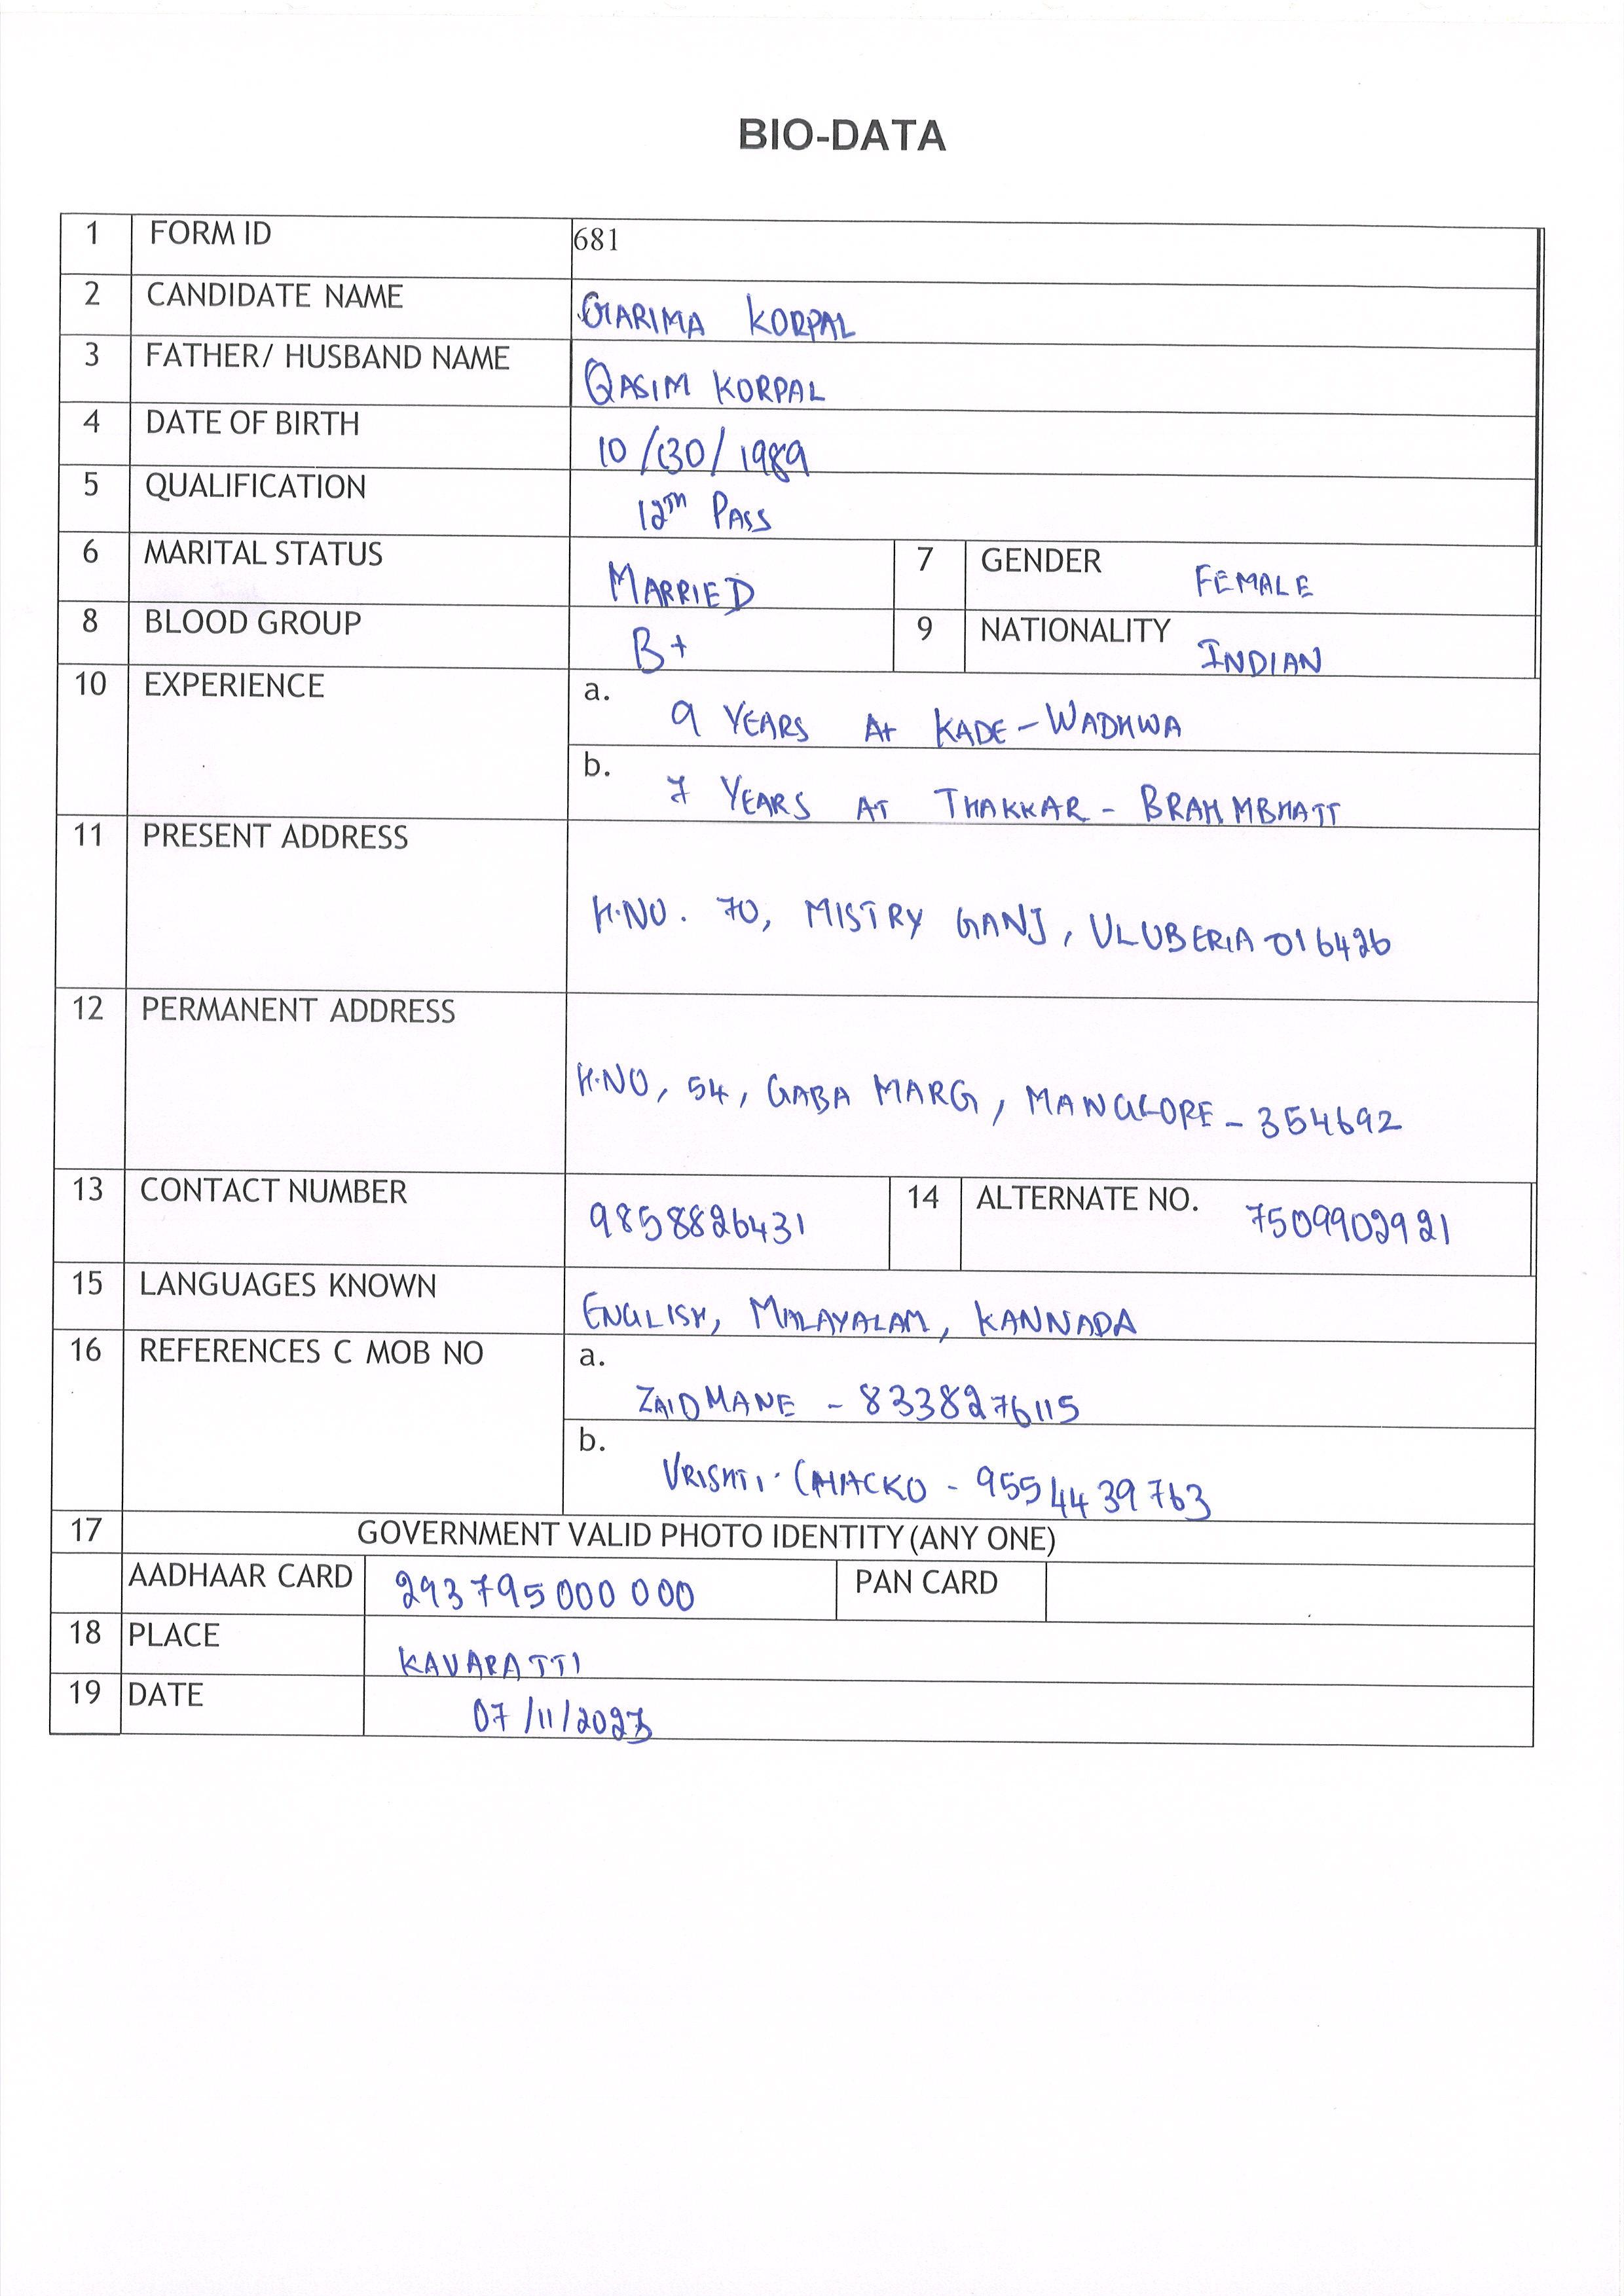 BIO-DATA
1 FORM ID 681
2 CANDIDATE NAME GARIMA KORPAL
3 FATHER/ HUSBAND NAME QASIM KORPAL
4 DATE OF BIRTH 10/30/1989
5 QUALIFICATION 12TH PASS
6 MARITAL STATUS MARRIED 7 GENDER FEMALE
8 BLOOD GROUP B+ 9 NATIONALITY INDIAN
10 EXPERIENCE a. 9 YEARS At KADE-WADHWA
b. 7 YEARS AT THAKKAR - BRAHMBHATT
11 PRESENT ADDRESS
H.NO. 70, MISTRY GANJ, ULUBERIA-016426
12 PERMANENT ADDRESS
H.NO, 54, GABA MARG, MANGLORE - 354692
13 CONTACT NUMBER 9858826431 14 ALTERNATE NO. 7509902921
15 LANGUAGES KNOWN ENGLISH, MALAYALAM, KANNADA
16 REFERENCES C MOB NO a. ZAID MANE - 8338276115
b. VRISHTI CHACKO - 9554439763
17 GOVERNMENT VALID PHOTO IDENTITY (ANY ONE)
AADHAAR CARD 293795000000 PAN CARD
18 PLACE KAVARATTI
19 DATE 07/11/2023